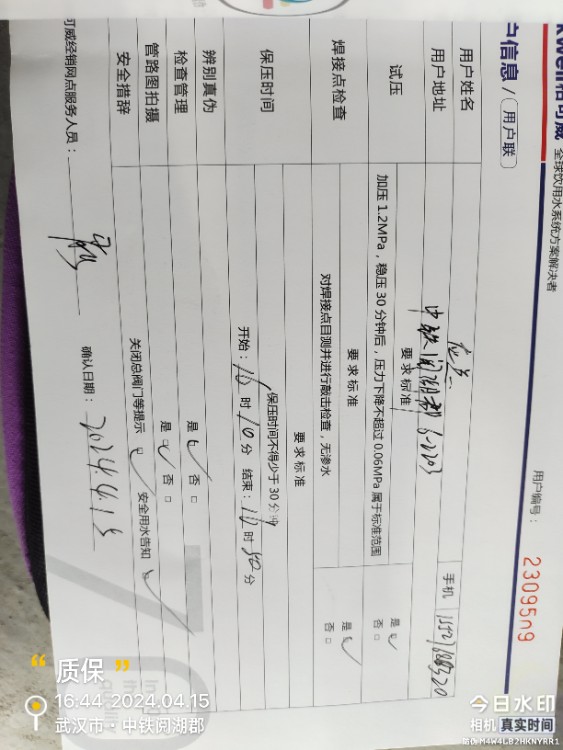 kwell柏可威 全球饮用水系统方案解决者
信息 / 用户联
用户编号：
2309509
用户姓名
手机
用户地址 中铁阅湖郡 3-2203
试压
要求标准
加压 1.2MPa，稳压 30 分钟后，压力下降不超过 0.06MPa 属于标准范围
是 ✓
否 □
焊接点检查
要求标准
对焊接点目测并进行敲击检查，无渗水
是 ✓
否 □
保压时间
要求标准
保压时间不得少于 30 分钟
开始：10 时 10 分 结束：10 时 50 分
辨别真伪
是 ✓ 否 □
检查管理
是 ✓ 否 □
管路图拍摄
安全措辞
关闭总阀门等提示 ✓ 安全用水告知 ✓
可威经销网点服务人员：
确认日期：2024.4.15
“质保”
16:44 2024.04.15
武汉市·中铁阅湖郡
今日水印
相机 真实时间
防伪 M4W4LB2HKNYRR1